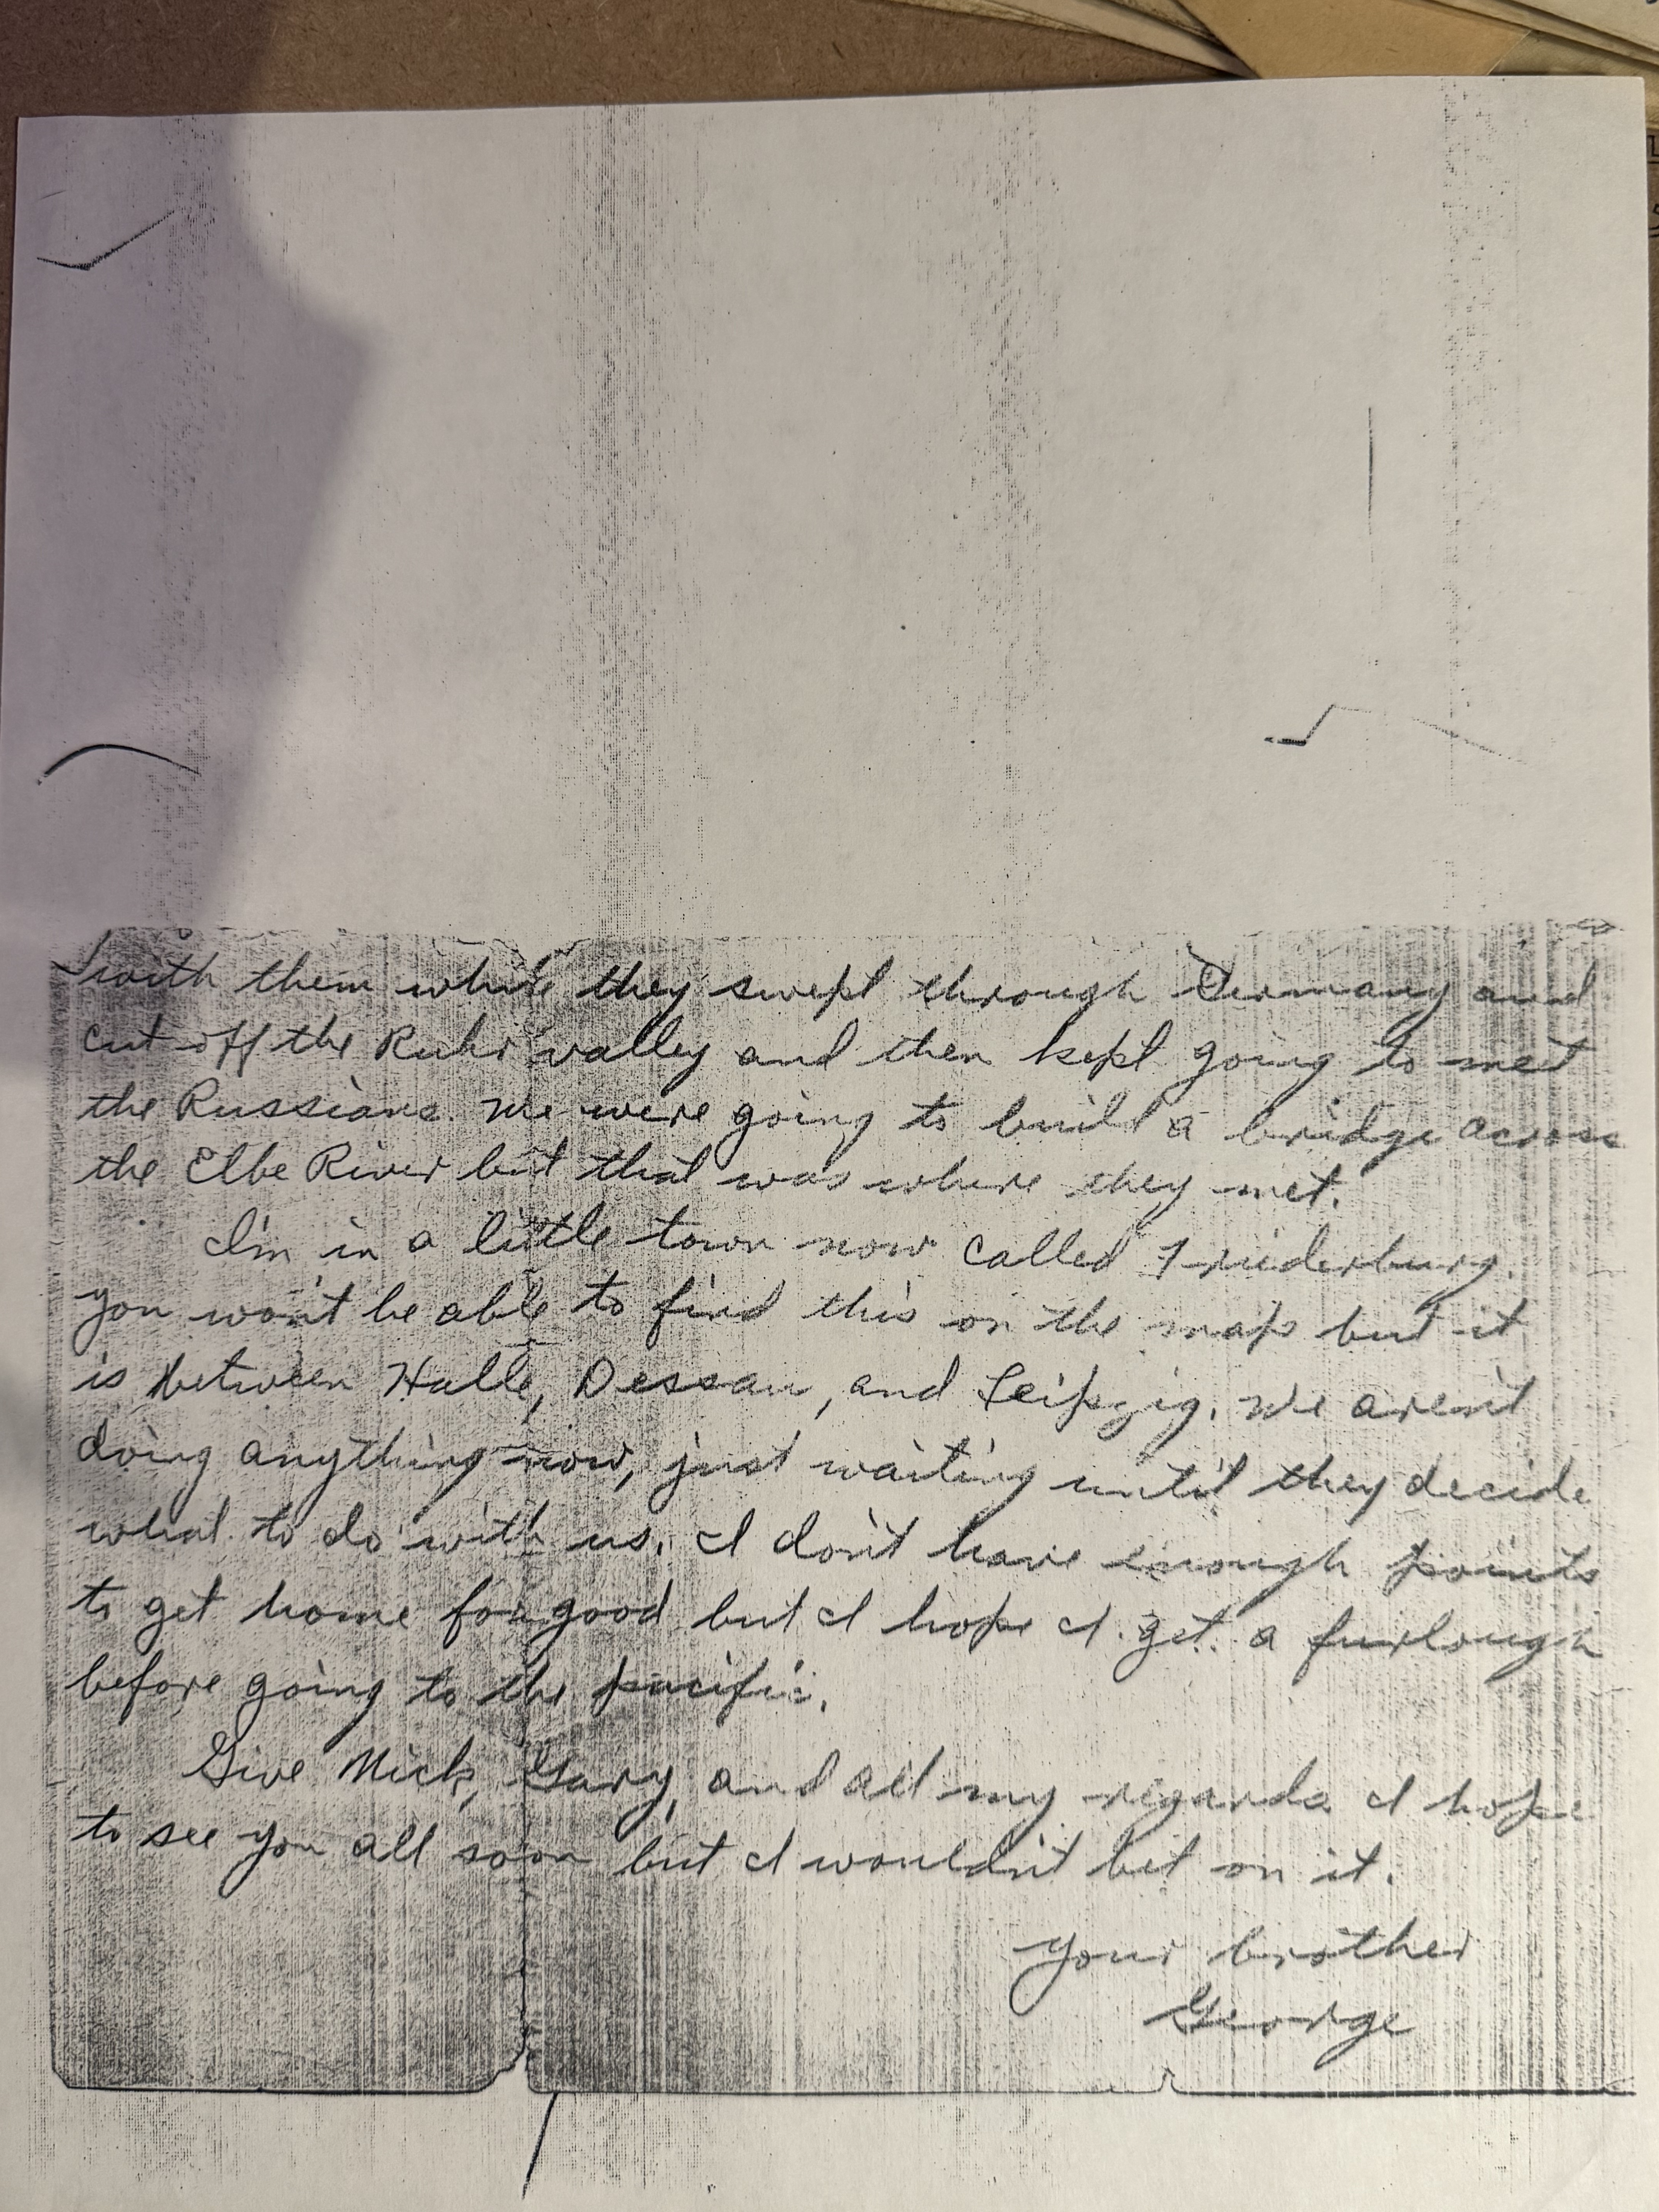 with them while they swept through Germany and
cut off the Ruhr valley and then kept going to met
the Russians. We were going to build a bridge across
the Elbe River but that was where they met.
I'm in a little town now called Friederburg.
you won't be able to find this on the map but it
is between Halle, Dessau, and Leipzig. We aren't
doing anything now, just waiting until they decide
what to do with us. I don't have enough points
to get home for good but I hope I get a furlough
before going to the pacific.
Give Nick, Gary, and all my regards I hope
to see you all soon but I wouldn't bet on it.
your brother
George